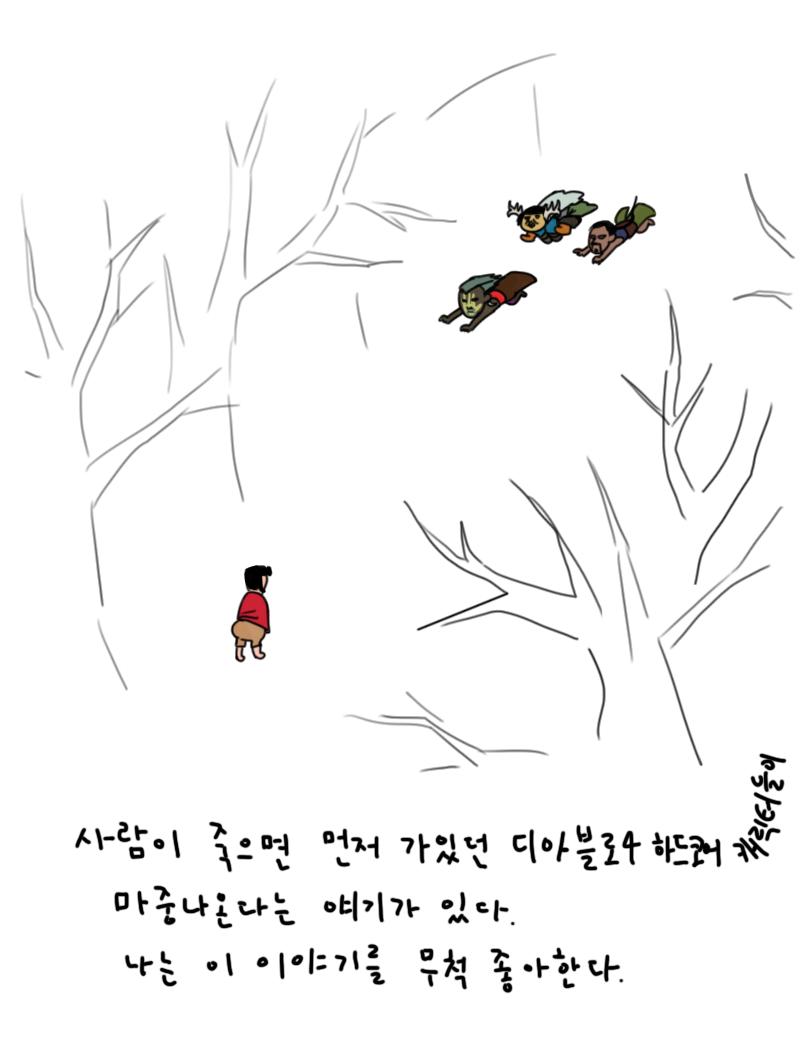 사람이 죽으면 먼저 가있던 디아블로4 하드코어 캐릭터들이
마중나온다는 얘기가 있다.
나는 이 이야기를 무척 좋아한다.